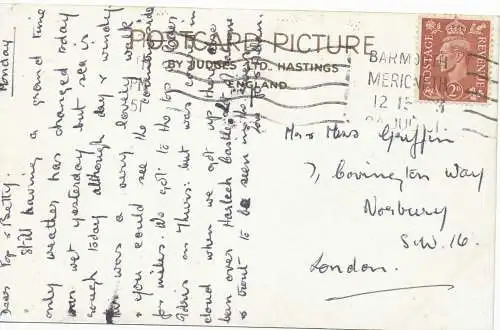 POSTCARD PICTURE
BY JUDGES LTD. HASTINGS
ENGLAND
BARMOUTH
12 15
POSTAGE
REVENUE
2D
Monday
Dear Pop & Betty.
Still having a grand time
only weather has changed today
wet yesterday but sea is
rough today although day & windy.
was a very lovely walk
& you could see the
for miles. We got to the top of
Idris on Thurs: but was in
cloud when we got up there.
over Harlech Castle
to be seen
Mr & Miss Griffin
7, Covington Way
Norbury
S.W.16.
London.